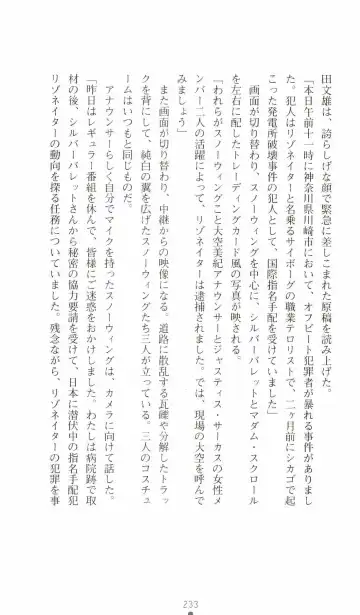 田文雄は、誇らしげな顔で緊急に差しこまれた原稿を読み上げた。
「本日午前十一時に神奈川県川崎市において、オフビート犯罪者が暴れる事件がありまし
た。犯人はリゾネイターと名乗るサイボーグの職業テロリストで、二ヶ月前にシカゴで起
こった発電所破壊事件の犯人として、国際指名手配を受けていました」
画面が切り替わり、スノーウィングを中心に、シルバーバレットとマダム・スクロール
を左右に配したトレーディングカード風の写真が映される。
「われらがスノーウィングこと大空美紀アナウンサーとジャスティス・サーカスの女性メ
ンバー二人の活躍によって、リゾネイターは逮捕されました。では、現場の大空を呼んで
みましょう」
また画面が切り替わり、中継からの映像になる。道路に散乱する瓦礫や分解したトラッ
クを背にして、純白の翼を広げたスノーウィングたち三人が立っている。三人のコスチュ
ームはいつもと同じものだ。
アナウンサーらしく自分でマイクを持ったスノーウィングは、カメラに向けて話した。
「昨日はレギュラー番組を休んで、皆様にご迷惑をおかけしました。わたしは病院跡で取
材の後、シルバーバレットさんから秘密の協力要請を受けて、日本に潜伏中の指名手配犯
リゾネイターの動向を探る任務についていました。残念ながら、リゾネイターの犯罪を事
233